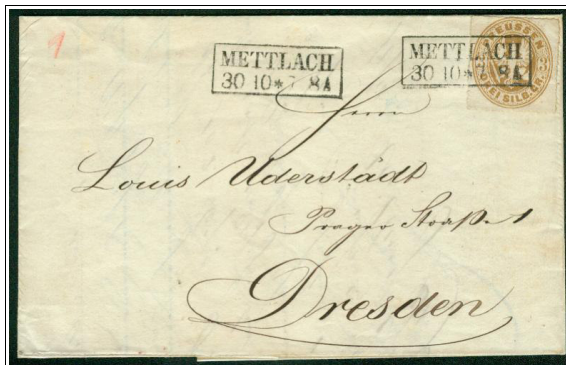 1
METTLACH
30 10 * 7 8A
METTLACH
30 10 * 8A
PREUSSEN
DREI SILB. GR.
3
Herrn
Louis Uderstädt
Prager Straße 1
Dresden